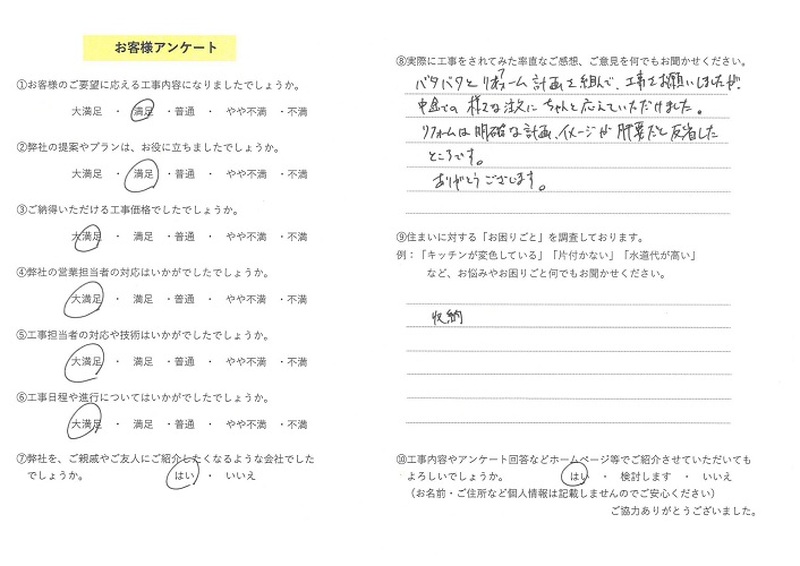 お客様アンケート
①お客様のご要望に応える工事内容になりましたでしょうか。
大満足 ・ 満足 ・普通 ・ やや不満 ・不満
②弊社の提案やプランは、お役に立ちましたでしょうか。
大満足 ・ 満足 ・普通 ・ やや不満 ・不満
③ご納得いただける工事価格でしたでしょうか。
大満足 ・ 満足 ・普通 ・ やや不満 ・不満
④弊社の営業担当者の対応はいかがでしたでしょうか。
大満足 ・ 満足 ・普通 ・ やや不満 ・不満
⑤工事担当者の対応や技術はいかがでしたでしょうか。
大満足 ・ 満足 ・普通 ・ やや不満 ・不満
⑥工事日程や進行についてはいかがでしたでしょうか。
大満足 ・ 満足 ・普通 ・ やや不満 ・不満
⑦弊社を、ご親戚やご友人にご紹介したくなるような会社でした
でしょうか。 はい ・ いいえ
⑧実際に工事をされてみた率直なご感想、ご意見を何でもお聞かせください。
バタバタと リフォーム 計画を組んで、工事をお願いしましたが、
中途での 様々な注文に ちゃんと応えていただけました。
リフォームは 明確な計画、イメージが 肝要だと 反省した
ところです。
ありがとうございます。
⑨住まいに対する「お困りごと」を調査しております。
例：「キッチンが変色している」「片付かない」「水道代が高い」
など、お悩みやお困りごと何でもお聞かせください。
収納
⑩工事内容やアンケート回答などホームページ等でご紹介させていただいても
よろしいでしょうか。 はい ・ 検討します ・ いいえ
（お名前・ご住所など個人情報は記載しませんのでご安心ください）
ご協力ありがとうございました。